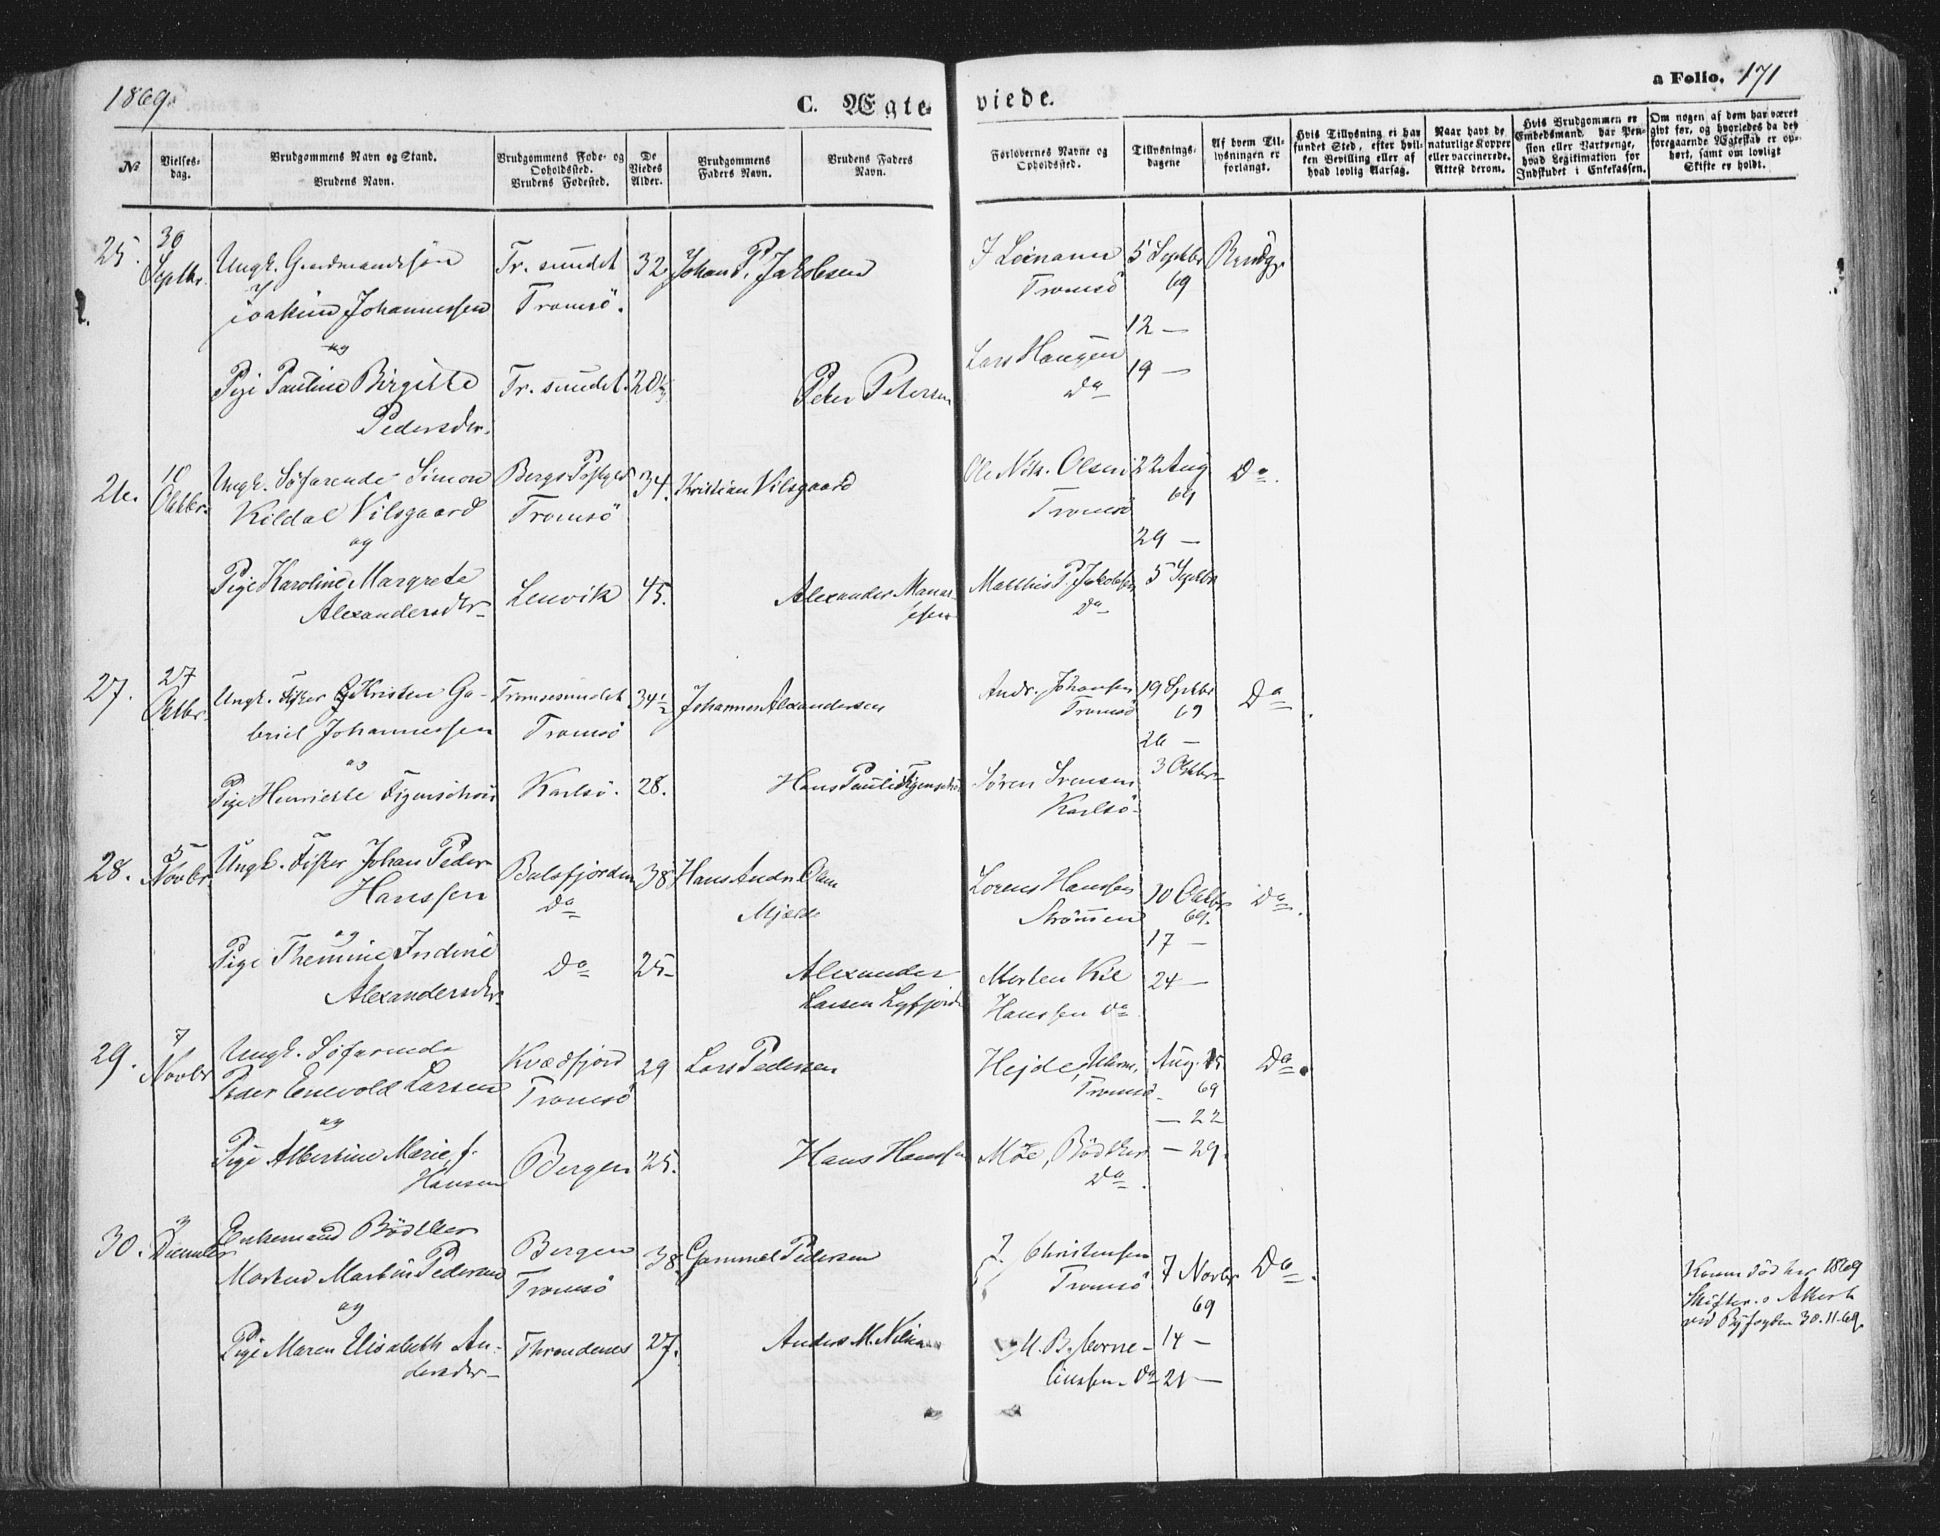 1869.
C. Ægte-
viede.
a Folio. 171
No
Vielses-
dag.
Brudgommens Navn og Stand.
Brudens Navn.
Brudgommens Føde- og
Opholdssted.
Brudens Fødested.
De
Viedes
Alder.
Brudgommens
Faders Navn.
Brudens Faders
Navn.
Forlovernes Navne og
Opholdssted.
Tillysnings-
dagene
Af hvem Til-
lysningen er
forlangt.
Hvis Tillysning ei har
fundet Sted, efter hvil-
ken Bevilling eller af
hvad lovlig Aarsag.
Naar havt de
naturlige Kopper
eller vaccinerede.
Attest derom.
Hvis Brudgommen er
Embedsmand, har Pen-
sion eller Vartpenge,
hvad Legitimation for
Indskudet i Enkekassen.
Om nogen af dem har været
gift før, og hvorledes da det
foregaaende Ægteskab er op-
hørt, samt om lovligt
Skifte er holdt.
25. 30 Septbr. Ungk. Gaardmandssøn Tr. sundet 32 Johan P. Jakobsen
Joakim Johannessen Tromsö.
og
Pige Pauline Birgitte Tr. sundet. 20 Peter Petersen
Pedersdtr.
Tromsö 5 Septbr 69 Brudg.
12 —
Lars Haugen 19 —
Do
26. 10 Oktbr. Ungk. Søfarende Simon 34. Kristian Vilsgaard
Kildal Vilsgaard Tromsö
og
Pige Karoline Margrete Lenvik 45. Alexander
Alexandersdtr
Ole Nik. Olsen 22 Aug 69 Do.
Tromsö
29 —
Matthis P. Jakobsen 5 Septbr
Do
27. 27 Oktbr. Ungk. Fisker Kristen Ga- Tromsesundet 34½ Johannes Alexandersen
briel Johannessen Tromsö
og
Pige Henriette Figenschou Karlsö. 28. Hans Figenschou
Andr. Johansen 19 Septbr 69 Do.
Tromsö
26 —
Søren 3 Oktbr
Karlsö.
28. 5 Novbr. Ungk. Fisker Johan Peder Balsfjorden 38 Hans Andr. Olsen
Hanssen Do Mjelde
og
Pige Indine Do 25 Alexander
Alexandersdtr. Larsen
Lorens Hanssen 10 Oktbr 69. Do.
Strømmen
17 —
Morten Kil 24 —
Hanssen Do
29. 7 Novbr Ungk. Søfarende Kvædfjord 29 Lars Pedersen
Peder Enevold Larsen Tromsö
og
Pige Albertine Marie f. Bergen 25. Hans Hanssen
Hansen
Hejde, Aug. 15 69 Do.
Tromsö
— 22
Moe, Bödtker — 29.
Do.
30. 3 Decemb Enkemand Bödtker Bergen 38. Gammel Pedersen
Morten Martin Pedersen Tromsö
og
Pige Maren Elisabeth An- Throndenes 27. Anders M.
dersdtr
Christensen 7 Novbr 69 Do.
Tromsö
14 —
Do 21 —
Konen død her 1869
Skifte Attest
ved Byfogden 30.11.69.